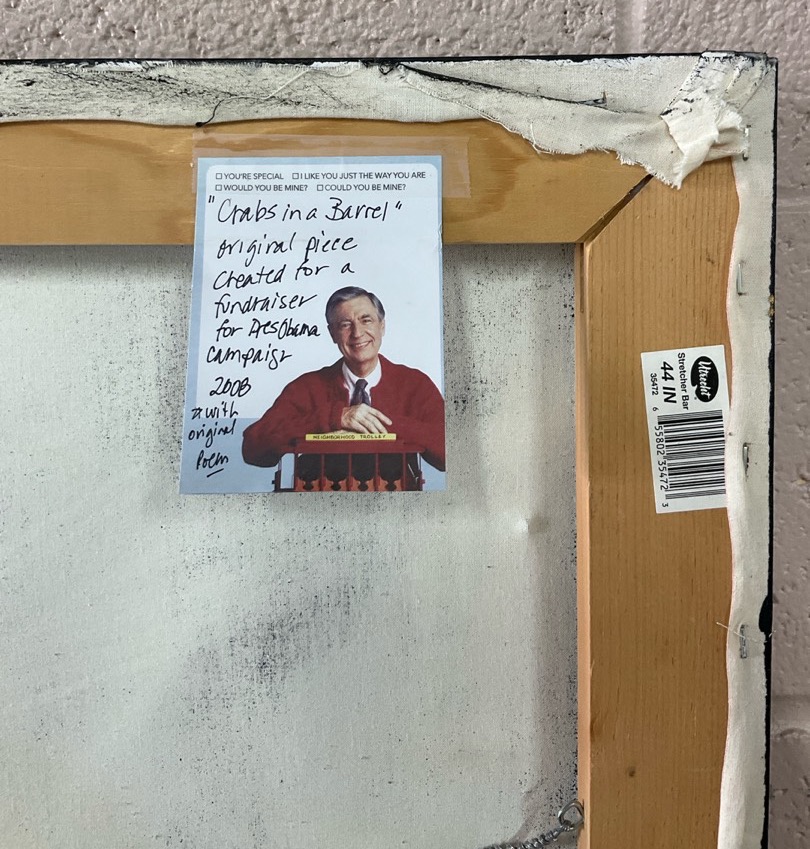 ☐ YOU'RE SPECIAL ☐ I LIKE YOU JUST THE WAY YOU ARE
☐ WOULD YOU BE MINE? ☐ COULD YOU BE MINE?
"Crabs in a Barrel"
original piece
created for a
fundraiser
for Pres Obama
campaign
2008
* with
original
Poem
NEIGHBORHOOD TROLLEY
Utrecht
Stretcher Bar
44 IN
35472
6 55802 35472 3